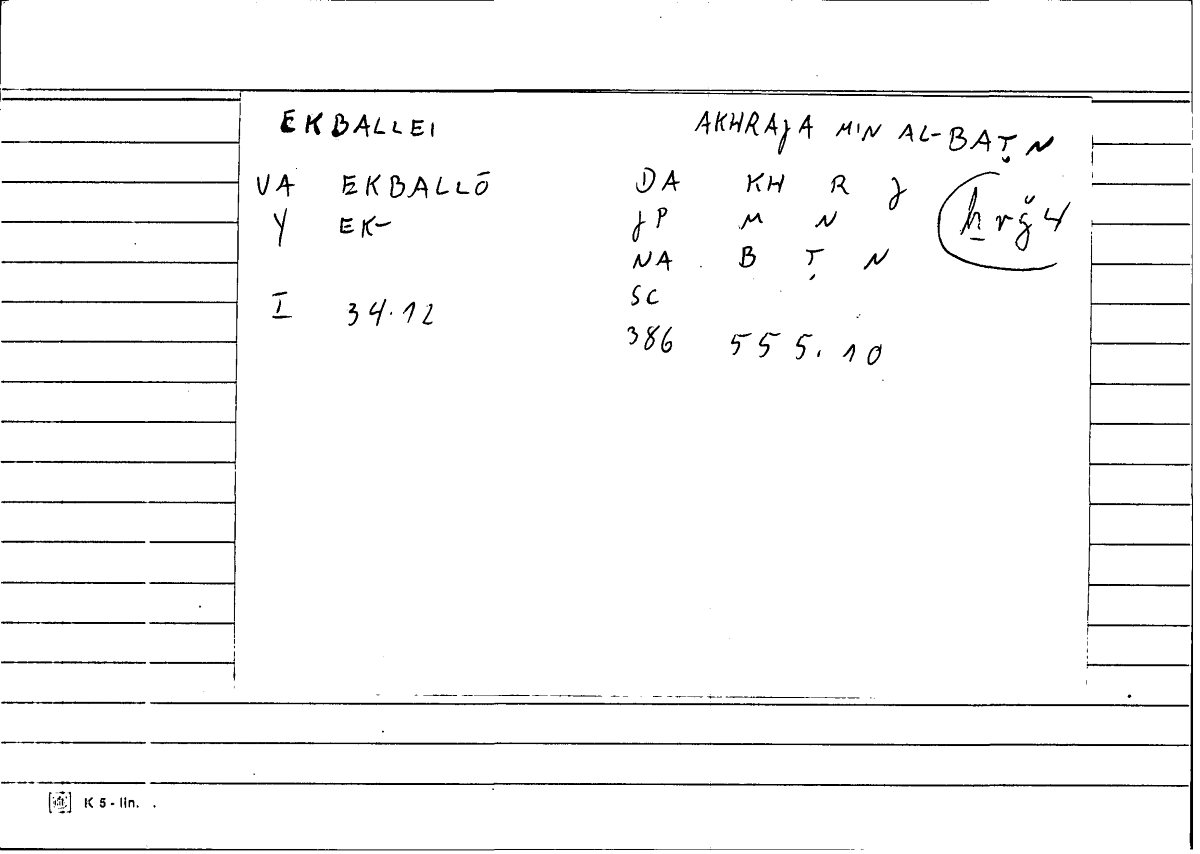 EKBALLEI AKHRAJA MIN AL-BAṬN
VA EKBALLŌ DA KH R J
Y EK- JP M N ẖrǧ4
NA B Ṭ N
I 34.12 SC
386 555.10
K 5 - lin.